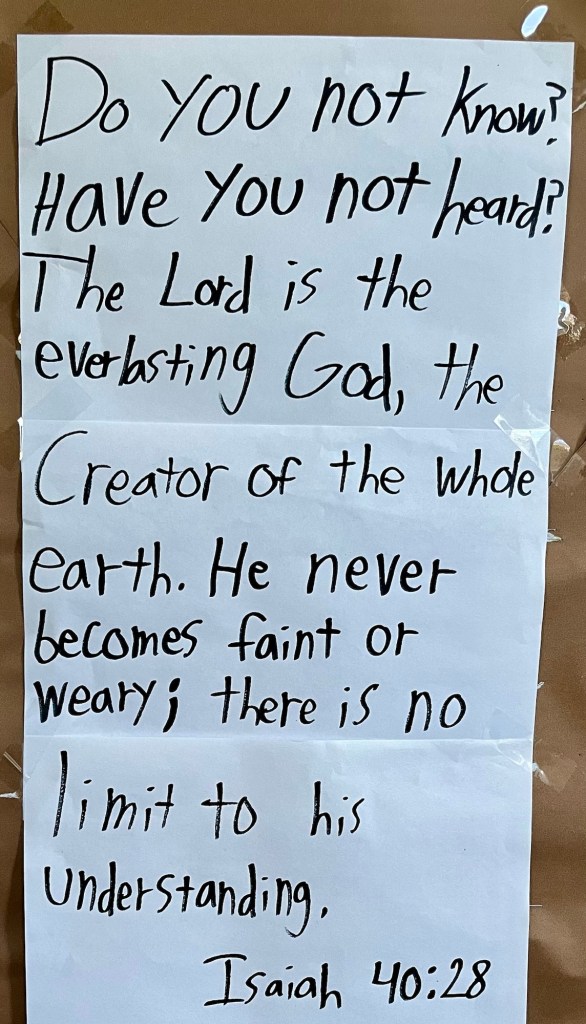 Do You not know?
Have You not heard?
The Lord is the
everlasting God, the
Creator of the whole
earth. He never
becomes faint or
weary; there is no
limit to his
Understanding.
Isaiah 40:28